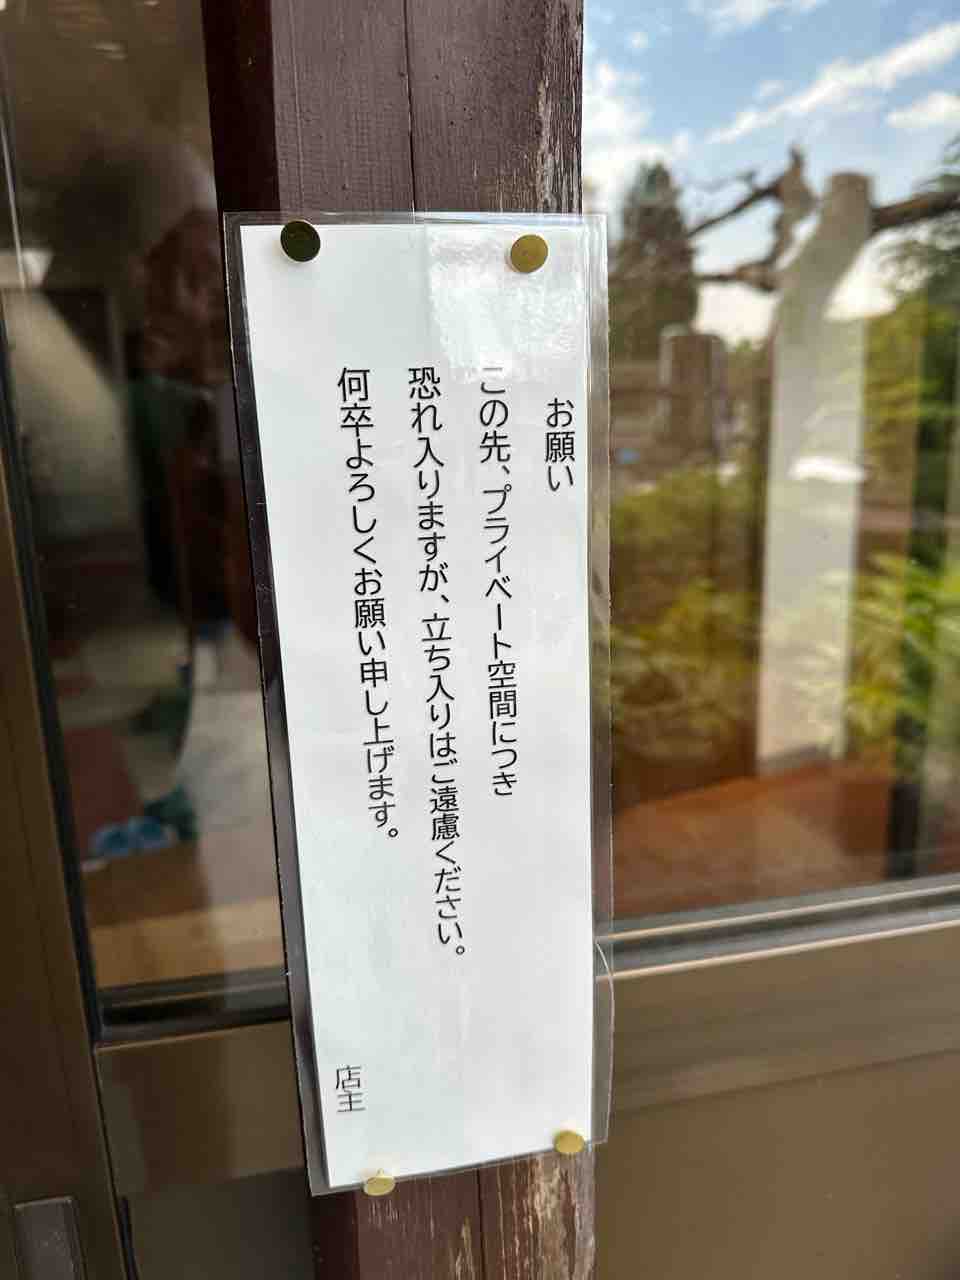 お願い
この先、プライベート空間につき
恐れ入りますが、立ち入りはご遠慮ください。
何卒よろしくお願い申し上げます。
店主